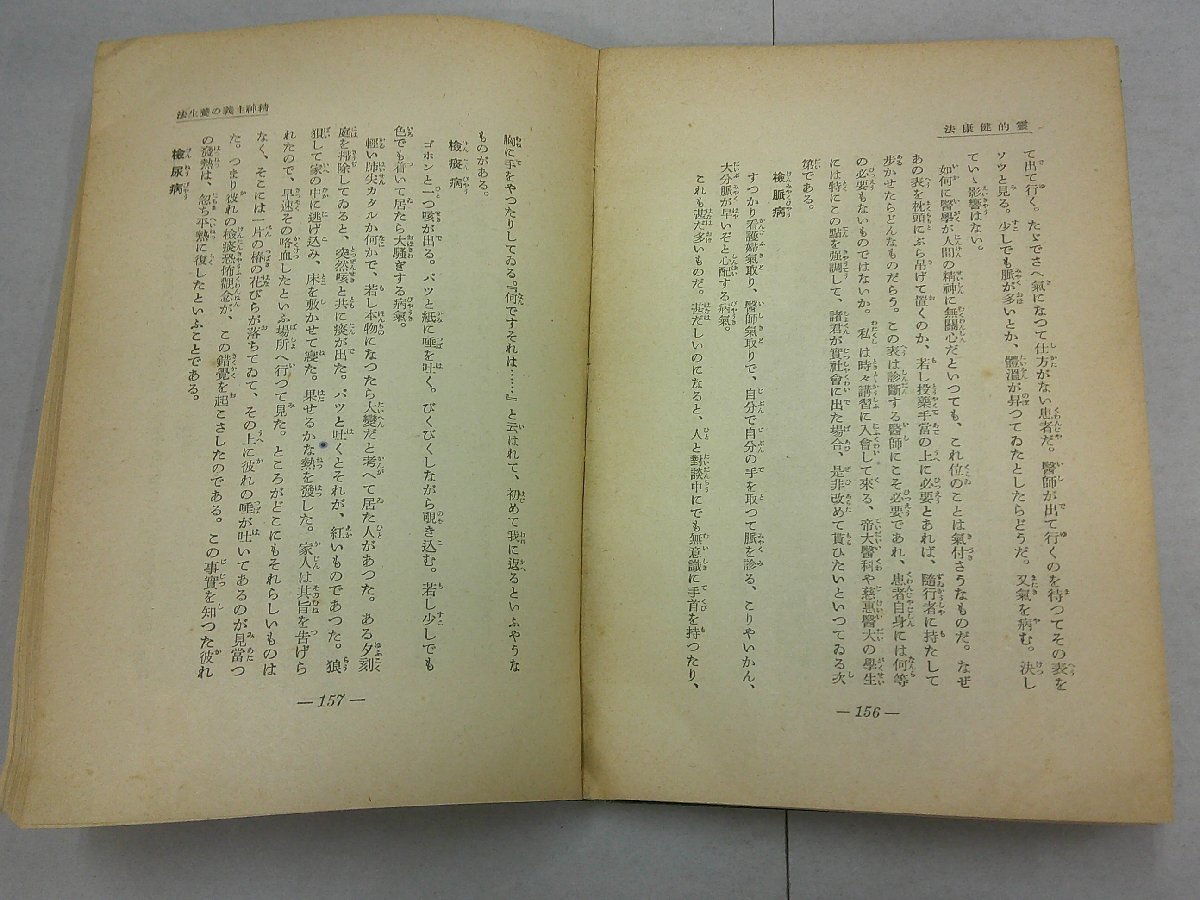 靈的健康法
て出て行く。たゞでさへ氣になつて仕方がない患者だ。醫師が出て行くのを待つてその表を
ソツと見る。少しでも脈が多いとか、體溫が昇つてゐたとしたらどうだ。又氣を病む。決し
てい丶影響はない。
如何に醫學が人間の精神に無關心だといつても、これ位のことは氣付さうなものだ。なぜ
あの表を枕頭にぶら吊けて置くのか、若し投藥手當の上に必要とあれば、隨行者に持たして
歩かせたらどんなものだらう。この表は診斷する醫師にこそ必要であれ、患者自身には何等
の必要もないものではないか。私は時々講習に入會して來る、帝大醫科や慈惠醫大の學生
には特にこの點を強調して、諸君が實社會に出た場合、是非改めて貰ひたいといつてゐる次
第である。
檢脈病
すつかり看護婦氣取り、醫師氣取りで、自分で自分の手を取つて脈を診る、こりやいかん、
大分脈が早いぞと心配する病氣。
これも甚だ多いものだ。甚だしいのになると、人と對談中にでも無意識に手首を持つたり、
— 156 —
精神主義の養生法
胸に手をやつたりしてゐる。『何ですそれは……』と云はれて、初めて我に返るといふやうな
ものがある。
檢痰病
ゴホンと一つ咳が出る。パツと紙に唾を吐く。びくびくしながら覗き込む。若し少しでも
色でも着いて居たら大騷ぎする病氣。
輕い肺尖カタルか何かで、若し本物になつたら大變だと考へて居た人があつた。ある夕刻
庭を掃除してゐると、突然咳と共に痰が出た。パツと吐くとそれが、紅いものであつた。狼
狽して家の中に逃げ込み、床を敷かせて寢た。果せるかな熱を發した。家人は其旨を告げら
れたので、早速その咯血したといふ場所へ行つて見た。ところがどこにもそれらしいものは
なく、そこには一片の椿の花びらが落ちてゐて、その上に彼れの唾が吐いてあるのが見當つ
た。つまり彼れの檢痰恐怖觀念が、この錯覺を起こさしたのである。この事實を知つた彼れ
の發熱は、忽ち平熱に復したといふことである。
檢尿病
— 157 —